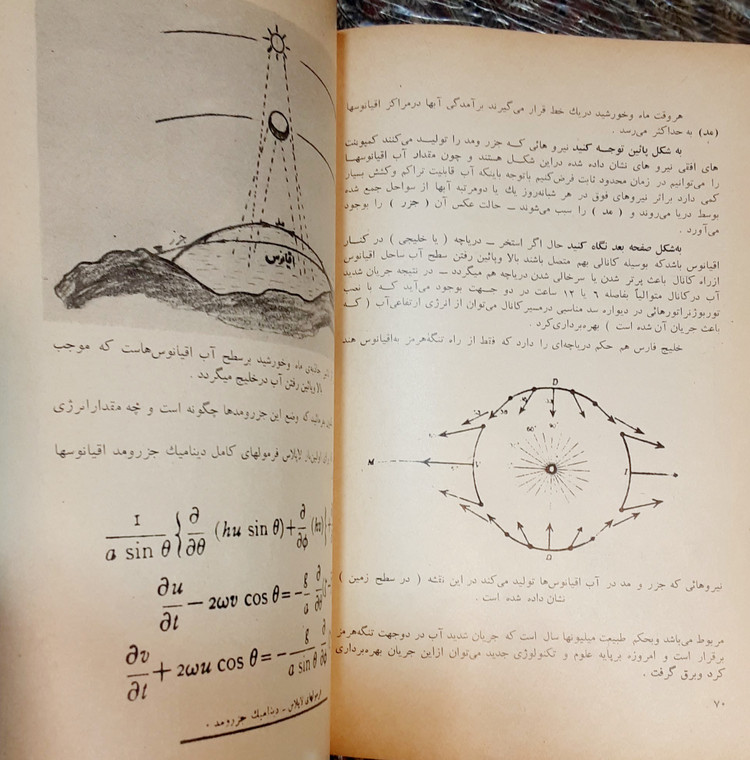 هروقت ماه وخورشید دریك خط قرار می‌گیرند برآمدگی آبها درمراکز اقیانوسها
(مد) به حداکثر می‌رسد .
به شکل پائین توجه کنید نیرو هائی که جزر ومد را تولید می‌کنند کمپوننت
های افقی نیرو های نشان داده شده دراین شکل هستند و چون مقدار آب اقیانوسها
را می‌توانیم در زمان محدود ثابت فرض‌کنیم باتوجه باینکه آب قابلیت تراکم وکشش بسیار
کمی دارد براثر نیروهای فوق در هر شبانه‌روز یك یا دومرتبه آبها از سواحل جمع شده
بوسط دریا می‌روند و ( مد ) را سبب می‌شوند – حالت عکس آن ( جزر ) را بوجود
می‌آورد .
به‌شکل صفحه بعد نگاه کنید حال اگر استخر – دریاچه ( یا خلیجی ) در کنار
اقیانوس باشدکه بوسیله کانالی بهم متصل باشند بالا وپائین رفتن سطح آب ساحل اقیانوس
ازراه کانال باعث پرتر شدن یا سرخالی شدن دریاچه هم میگردد – در نتیجه جریان شدید
آب درکانال متوالیاً بفاصله ۶ یا ۱۲ ساعت در دو جهت بوجود می‌آید که با نصب
توربوژنراتورهائی در دیواره سد مناسبی درمسیرکانال می‌توان از انرژی ارتفاعی‌آب ( که
باعث جریان آن شده است ) بهره‌برداری‌کرد .
خلیج فارس هم حکم دریاچه‌ای را دارد که فقط از راه تنگه‌هرمز به‌اقیانوس هند
D
60°
M
V
I
D
نیروهائی که جزر و مد در آب اقیانوس‌ها تولید می‌کند در این نقشه ( در سطح زمین )
نشان داده شده است .
مربوط می‌باشد وبحکم طبیعت میلیونها سال است که جریان شدید آب در دوجهت تنگه‌هرمز
برقرار است و امروزه برپایه علوم و تکنولوژی جدید می‌توان ازاین جریان بهره‌برداری
کرد وبرق گرفت .
۷۰
مد
جزر
اقیانوس
ماه وخورشید برسطح آب اقیانوس‌هاست که موجب
بالا وپائین رفتن آب درخلیج میگردد .
که وضع این جزرومدها چگونه است و چه مقدارانرژی
لاپلاس فرمولهای کامل دینامیك جزرومد اقیانوسها
1/(a sin θ) {∂/∂θ (hu sin θ)+∂/∂φ (hv)}+
∂u/∂t − 2ωv cos θ=−g/a ∂/∂θ
∂v/∂t + 2ωu cos θ=−g/(a sin θ) ∂/∂φ
لاپلاس – دینامیك جزرومد .